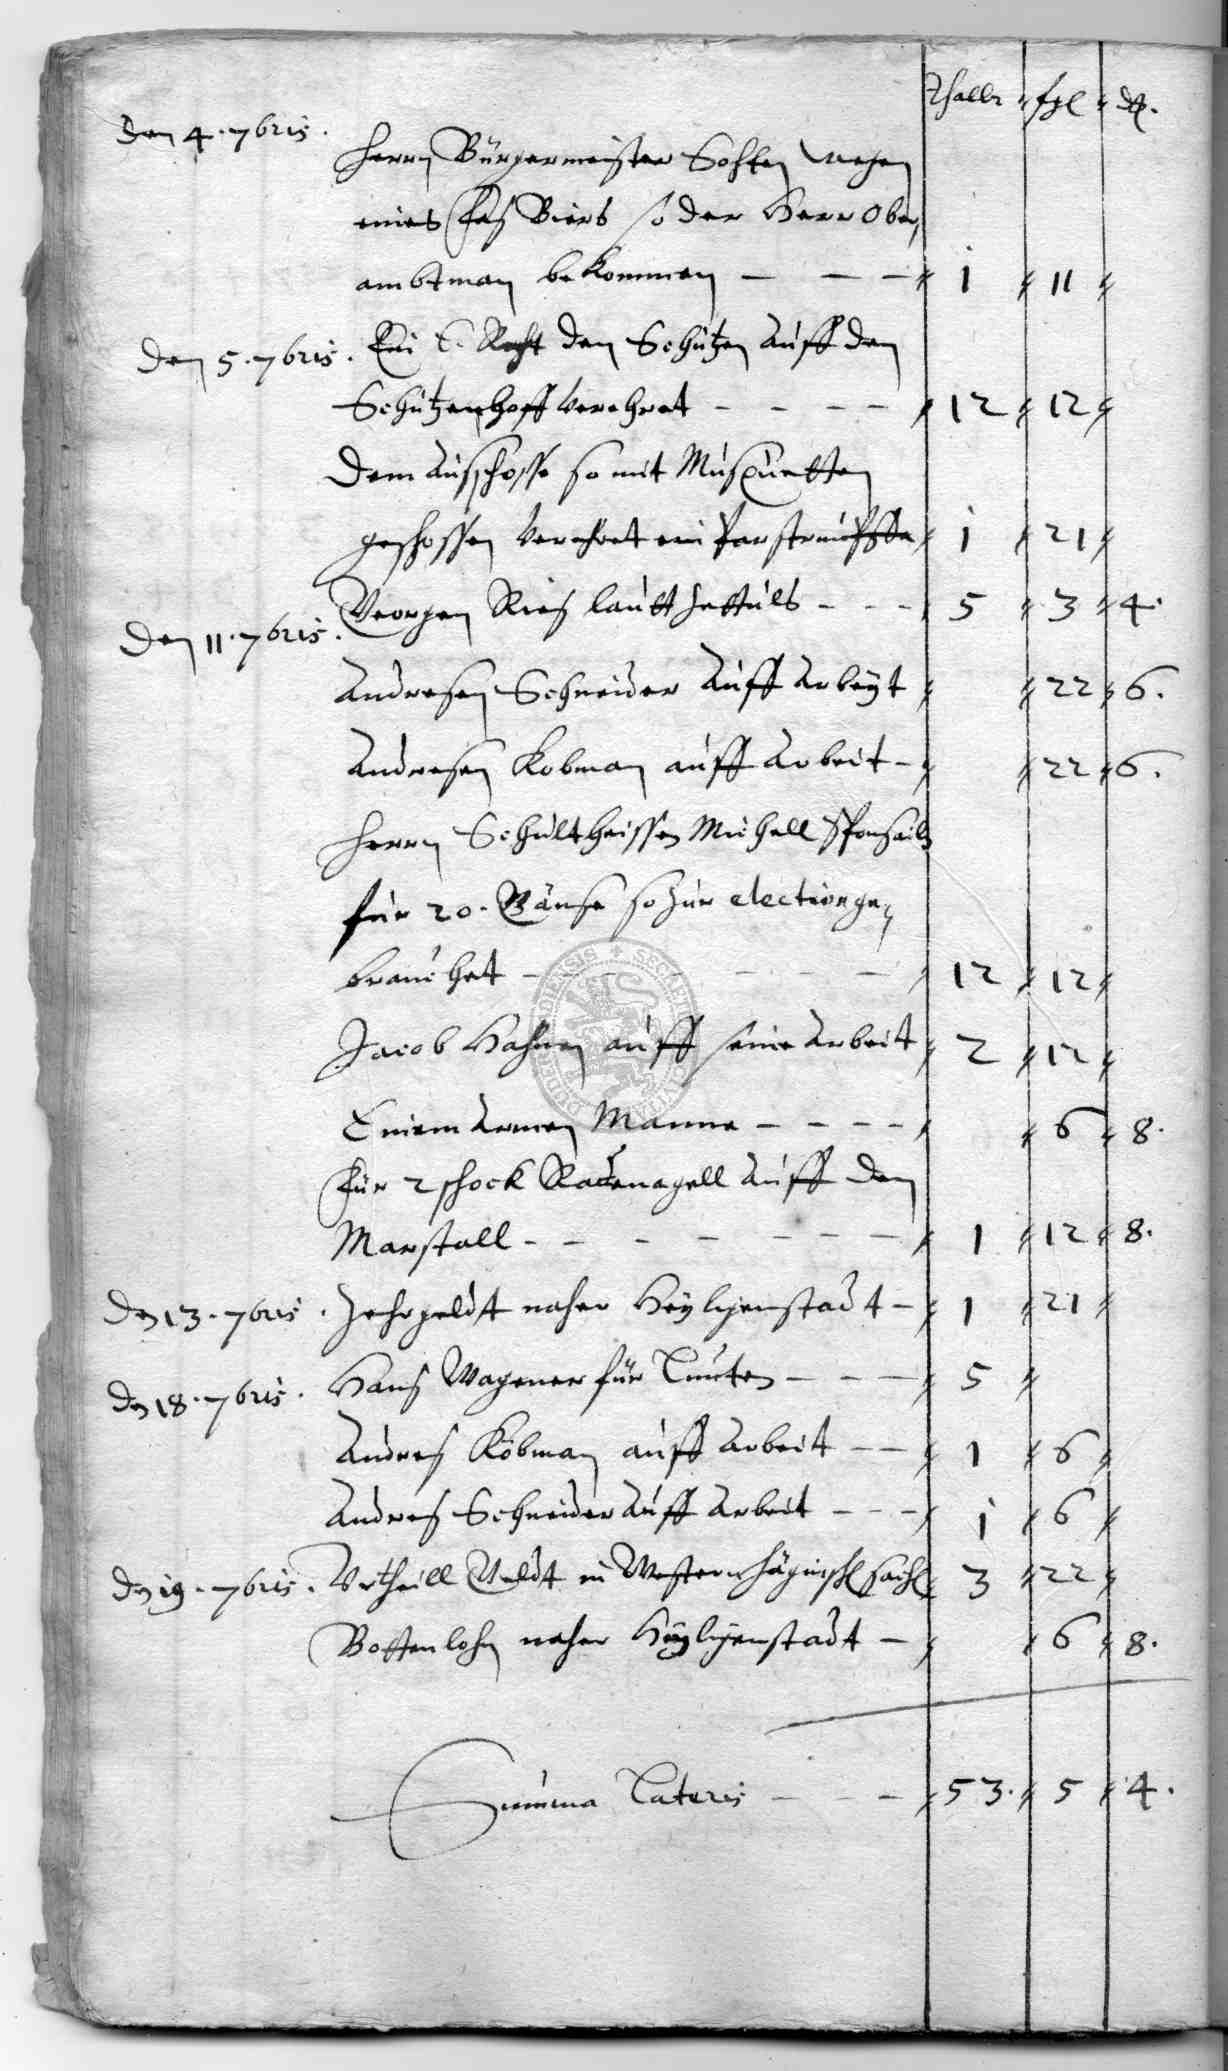 Thaller fgl ₰.
Den 4. 7bris.
Herrn Bürgermeister Sohten wegen
eines Fas Biers so der Herr Ober,
ambtman bekommen - - - 1 11
Den 5. 7bris. Ein E. Raht den Schützen auff den
Schützenhoff verehret - - - - 12 12
Dem ausschosse so mit Musquetten
geschossen verehret ein 1 21
Georgen Ries lautt Zettuls - - - 5 3 4.
Den 11. 7bris.
Andresen Schneider auff arbeyt 22 6.
Andresen Kobman auff arbeit - 22 6.
Herrn Schultheissen Michell
für 20. Gänse so zur election ge,
brauchet - - - - - - 12 12
Jacob Hahnen auff seine arbeit 2 12
Einem armen Manne - - - - 6 8.
Für 2 schock Radenagell auff den
Marstall - - - - - - - 1 12 8.
Den 13. 7bris. Zehrgeldt naher Heyligenstadt - 1 21
Den 18. 7bris. Hans Wagener für Lunten - - - 5
Andres Kobman auff arbeit - - 1 6
Andres Schneider auff arbeit - - - 1 6
Den 19. 7bris. Urtheill Geldt in Westernhägnisch sach 3 22
Bottenlohn naher Heyligenstadt - 6 8.
Summa Lateris - - - 53. 5 4.